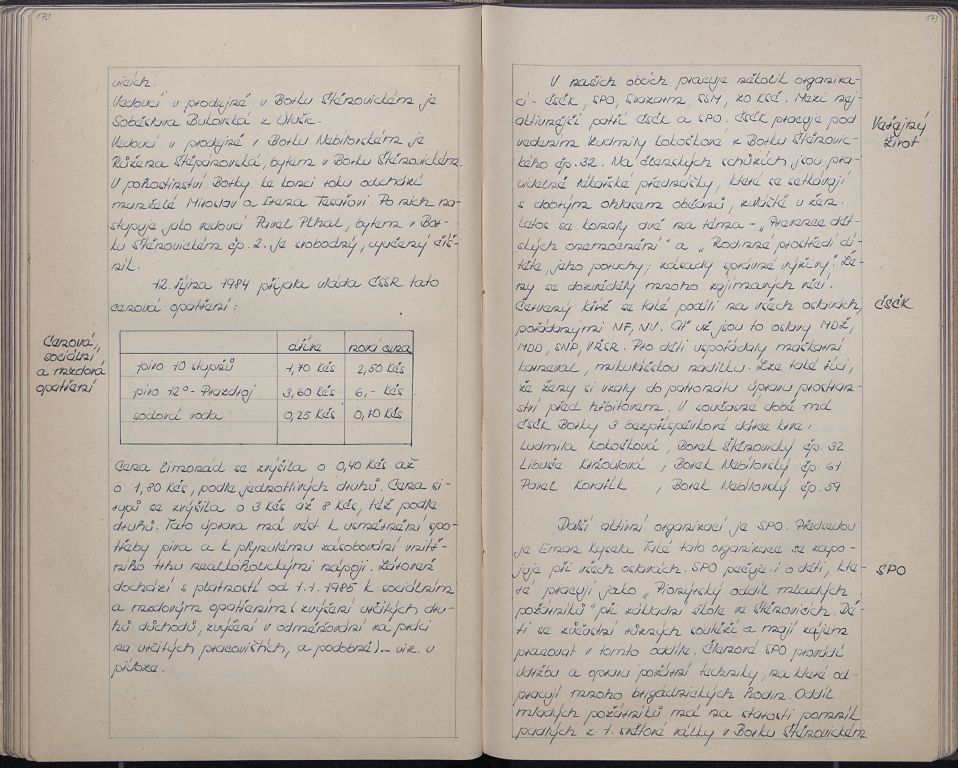 170
vicích.
Vedoucí v prodejně v Borku Štěnovickém je
Soběslava Bulovská z Útušic.
Vedoucí v prodejně v Borku Nebílovském je
Růžena Štěpánovská, bytem v Borku Štěnovickém.
V pohostinství Borky ke konci roku odchází
manželé Miroslav a Irena Tesařovi. Po nich na-
stupuje jako vedoucí Pavel Plhal, bytem v Bor-
ku Štěnovickém čp. 2. Je svobodný, vyučený číš-
ník.
12. října 1984 přijala vláda ČSSR tato
cenová opatření:
Cenová,
sociální
a mzdová
opatření
dříve nová cena
pivo 10 stupňů 1,70 Kčs 2,50 Kčs
pivo 12° - Prazdroj 3,60 Kčs 6,- Kčs
sodová voda 0,25 Kčs 0,70 Kčs
Cena limonád se zvýšila o 0,40 Kčs až
o 1,80 Kčs, podle jednotlivých druhů. Cena si-
rupů se zvýšila o 3 Kčs až 8 Kčs, též podle
druhů. Tato úprava má vést k usměrnění spo-
třeby piva a k plynulému zásobování vnitř-
ního trhu nealkoholickými nápoji. Zároveň
dochází s platností od 1.1.1985 k sociálním
a mzdovým opatřením (zvýšení určitých dru-
hů důchodů, zvýšení v odměňování za práci
na určitých pracovištích, a podobně) - viz. v
příloze.
171
V našich obcích pracuje několik organiza-
cí - ČSČK, SPO, Svazarm, SSM, ZO KSČ. Mezi nej-
aktivnější patří ČSČK a SPO. ČSČK pracuje pod
vedením Ludmily Kokoškové z Borku Štěnovic-
kého čp. 32. Na členských schůzích jsou pra-
videlné lékařské přednášky, které se setkávají
s dobrým ohlasem občanů, zvláště u žen.
Letos se konaly dvě na téma - "Prevence dět-
ských onemocnění" a "Rodinné prostředí dí-
těte, jeho poruchy; zásady správné výživy". Že-
ny se dozvěděly mnoho zajímavých věcí.
Červený kříž se také podílí na všech oslavách,
pořádanými NF, NV. Ať už jsou to oslavy MDŽ,
MDD, SNP, VŘSR. Pro děti uspořádaly maškarní
karneval, mikulášskou nadílku. Lze také říci,
že ženy si vzaly do patronátu úpravu prostran-
ství před hřbitovem. V současné době má
ČSČK Borky 3 bezpříspěvkové dárce krve:
Ludmila Kokošková, Borek Štěnovický čp. 32
Libuše , Borek Nebílovský čp. 61
Pavel , Borek Nebílovský čp. 59
Veřejný
život
ČSČK
Další aktivní organizací je SPO. Předsedou
je Eman Kysela. Také tato organizace se zapo-
juje při všech oslavách. SPO pečuje i o děti, kte-
ré pracují jako "Pionýrský oddíl mladých
požárníků" při základní škole ve Štěnovicích. Dě-
ti se zúčastní různých soutěží a mají zájem
pracovat v tomto oddíle. Členové SPO provádí
údržbu a opravu požární techniky, na které od-
pracují mnoho brigádnických hodin. Oddíl
mladých požárníků má na starosti pomník
padlých z 1. světové války v Borku Štěnovickém
SPO